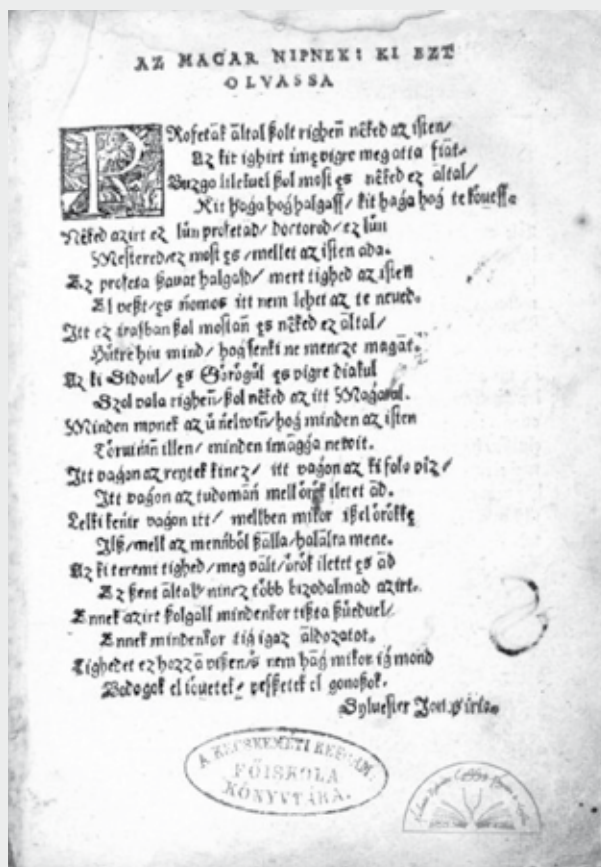 AZ MAGAR NIPNEK: KI EZT
OLVASSA
PRofetāk āltal ßolt righeń nēked az iſten/
Az kit ighirt ímę vigre megatta fiāt.
Buzgo lilekuel ßol moſt ęs nēked ez āltal/
Kit haǵa hoǵ halgaſſ/ kit haǵa hoǵ te kőueſſ.
Nēked azirt ez lűn profetād/ doctorod/ ez lűn
Meſtered/ ez moſt ęs/ mellet az iſten ada.
Ez profeta ßavat halgaſd/ mert tighed az iſten
El veßt/ ęs ńomos itt nem lehet az te neued.
Itt ez íraſban ßol moſtań ęs nēked ez āltal/
Hűtre hiu mind/ hoǵ ſenki ne mencze magāt.
Az ki Sidoul/ ęs Gőrőgűl ęs vigre diakul
Szol vala righeń/ ßol nēked az itt Maǵarul.
Minden nipnek az ű ńelwiń/ hoǵ minden az iſten
Tőruiniń illen/ minden imāǵǵa neuit.
Itt vaǵon az reytek kincz/ itt vaǵon az ki folo víz/
Itt vaǵon az tudomāń mell őrők íletet ād.
Lelki keńir vaǵon itt/ mellben mikor íßel őrőkkę
Ilß/ mell az menńbōl ßālla/ halālra mene.
Az ki teremt tighed/ meg vālt/ őrők íletet ęs ād
Ez ßent āltal/ nincz tőbb bizodalmad azirt.
Ennek azirt ßolgall mindenkor tißta ßűuduel/
Ennek mindenkor tíǵ igaz āldozatot.
Tighedet ez hozzā vißen/ s nem hāǵ mikor íǵ mond
Bodogok el iőuetek/ veßßetek el gonoßok.
Sylveſter Ioń. írta.
A KECSKEMÉTI REFORM.
FŐISKOLA
KÖNYVTÁRA.